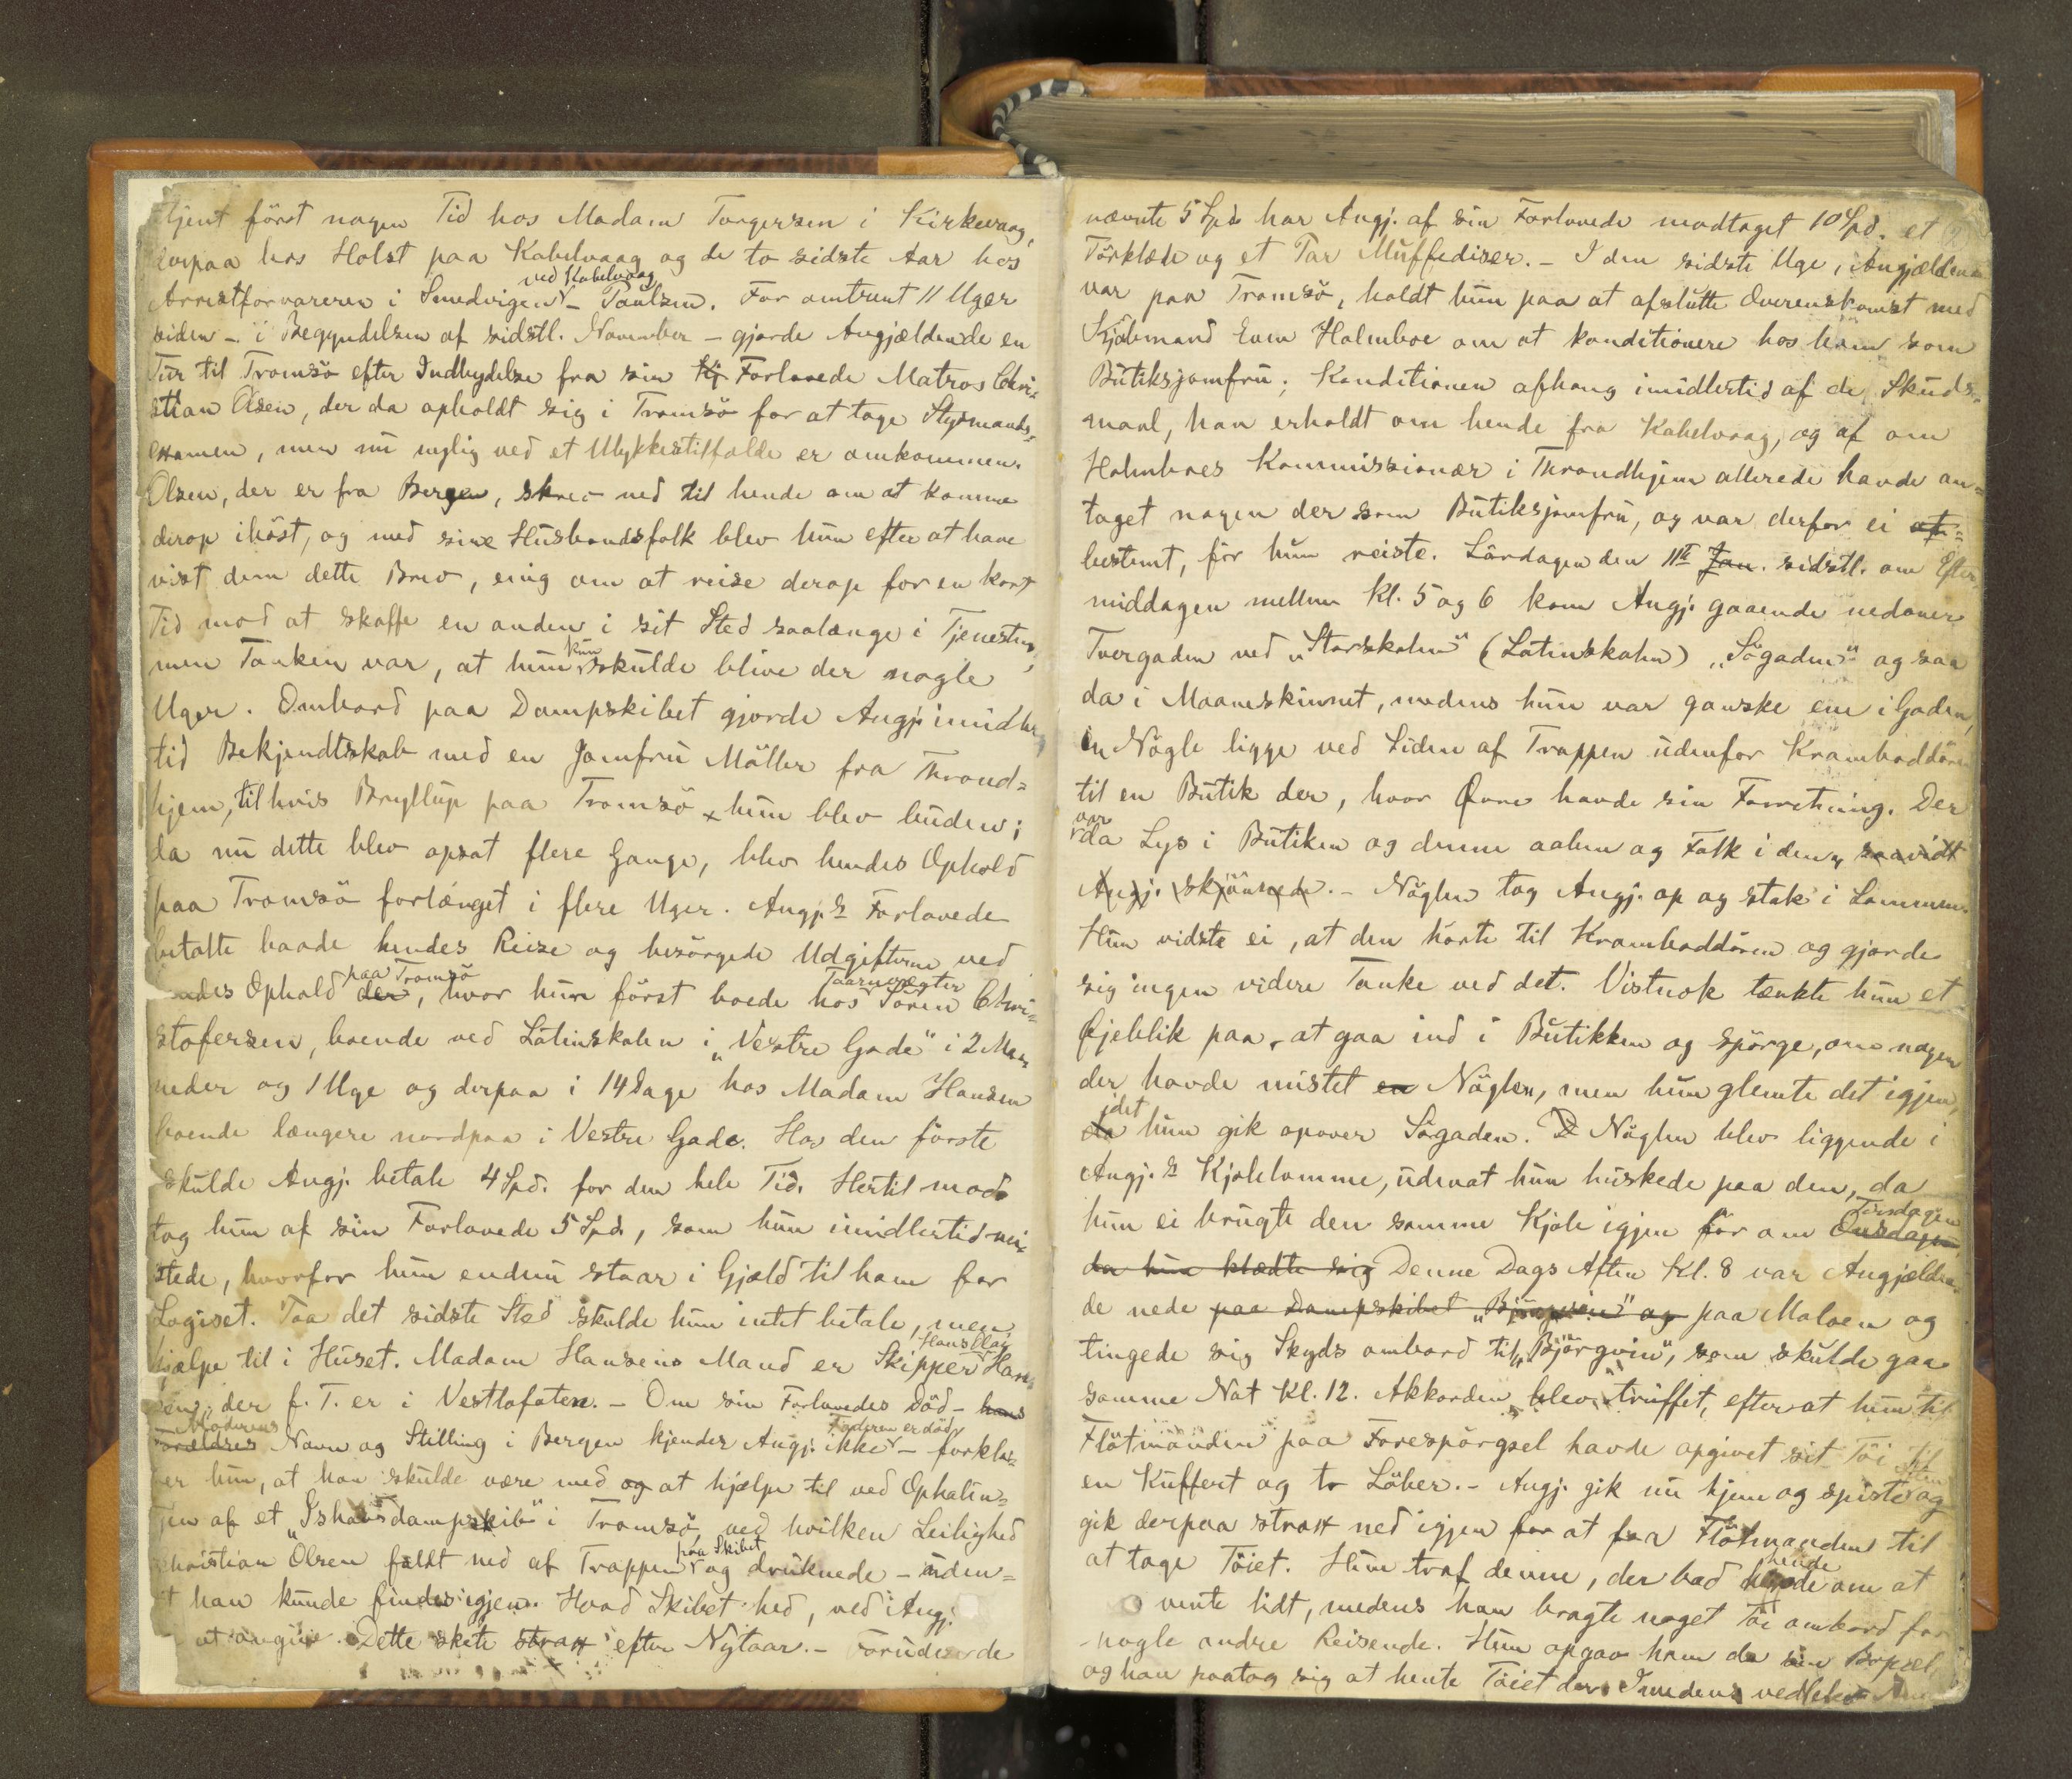 tjent först nogen Tid hos Madam Torgersen i Kirkevaag,
derpaa hos Holst paa Kabelvaag og de to sidste Aar hos
ved Kabelvaag
Arrestforvareren i Smedvigen - Paulsen. For omtrent 11 Uger
siden - i Begyndelsen af sidstl. November - gjorde Angjældende en
Tur til Tromsö efter Indbydelse fra sin Kj Forlovede Matros Chri-
stian Olsen, der da opholdt sig i Tromsö for at tage Styrmands-
examen, men nu nylig ved et Ulykkestilfælde er omkommen.
Olsen, der er fra Bergen, skrev ned til hende om at komme
derop ihöst, og med sine Husbondsfolk blev hun efter at have
vist dem dette Brev, enig om at reise derop for en kort
Tid mod at skaffe en anden i sit Sted saalænge i Tjenesten,
men Tanken var, at hun kun skulde blive der nogle
Uger. Ombord paa Dampskibet gjorde Angj. imidler-
tid Bekjendtskab med en Jomfru Möller fra Thrond=
hjem, til hvis Bryllup paa Tromsö hun blev buden;
da nu dette blev opsat flere Gange, blev hendes Ophold
paa Tromsö forlænget i flere Uger. Angj.s Forlovede
betalte baade hendes Reise og besörgede Udgifterne ved
paa Tromsö Taarnvægter
hendes Ophold der, hvor hun först boede hos Sören Chri=
stofersen, boende ved Latinskolen i "Vestre Gade" i 2 Maa-
neder og 1 Uge og derpaa i 14 Dage hos Madam Hansen
boende længere nordpaa i Vestre Gade. Hos den förste
skulde Angj. betale 4 Spd. for den hele Tid. Hertil mod-
tog hun af sin Forlovede 5 Spd., som hun imidlertid mi-
stede, hvorfor hun endnu staar i Gjæld til ham for
Logiset. Paa det sidste Sted skulde hun intet betale, men
hjælpe til i Huset. Madam Hansens Mand er Skipper Han-
sen, der p. T. er i Vestlofoten. - Om sin Forlovedes Död - hans
Moderens Faderen er död
Forældres Navn og Stilling i Bergen kjender Angj. ikke - forkla-
rer hun, at han skulde være med og at hjælpe til ved Ophalin=
gen af et "Ishavsdampskib" i Tromsö, ved hvilken Leilighed
paa Skibet
Christian Olsen faldt ned af Trappen og druknede - uden=
at han kunde findes igjen. Hvad Skibet hed, ved Angj.
at angive. Dette skete strax efter Nytaar. - Foruden de
nævnte 5 Spd. har Angj. af sin Forlovede modtaget 10 Spd. et
Törklæde og et Par Muffediser. - I den sidste Uge, Angjældende
var paa Tromsö, holdt hun paa at afslutte Overenskomst med
Kjöbmand Even Holmboe om at konditionere hos ham som
Butiksjomfru; Konditionen afhang imidlertid af de Skuds-
maal, han erholdt om hende fra Kabelvaag, og af om
Holmboes Kommissionær i Throndhjem allerede havde an=
taget nogen der som Butiksjomfru, og var derfor ei af=
bestemt, för hun reiste. Lördagen den 11te Jan. sidstl. om Efter-
middagen mellem Kl. 5 og 6 kom Angj. gaaende nedover
Tvergaden ved "Storskolen" (Latinskolen) "Sögaden" og saa
da i Maaneskinnet, medens hun var ganske ene i Gaden,
en Nögle ligge ved Siden af Trappen udenfor Kramboddören
til en Butik der, hvor Qvam havde sin Forretning. Der
var
da Lys i Butiken og denne aaben og Folk i den, saavidt
Angj. skjönnede. - Nöglen tog Angj. op og stak i Lommen.
Hun vidste ei, at den hörte til Kramboddören og gjorde
sig ingen videre Tanke ved det. Vistnok tænkte hun et
Öjeblik paa, at gaa ind i Butikken og spörge, om nogen
der havde mistet en Nöglen, men hun glemte det igjen,
idet
da hun gik opover Sögaden. D Nöglen blev liggende i
Angj.s Kjolelomme, udenat hun huskede paa den, da
Tirsdagen
hun ei brugte den samme Kjole igjen för om Onsdagen
da hun klædte sig Denne Dags Aften Kl. 8 var Angjælden-
de nede paa Dampskibet "Björgvin" og paa Moloen og
tingede sig Skyds ombord til "Björgvin", som skulde gaa
samme Nat Kl. 12. Akkorden blev truffet, efterat hun til
Flötmanden paa Forespörgsel havde opgivet sit Töi til
en Kuffert og to Löber. - Angj. gik nu hjem og spiste og
gik derpaa strax ned igjen for at faa Flötmanden til
hende
at tage Töiet. Hun traf denne, der bad om at
vente lidt, medens han bragte noget Töi ombord for
nogle andre Reisende. Hun opgav ham da sin Bopæl
og han paatog sig at hente Töiet der. Imedens vedblev